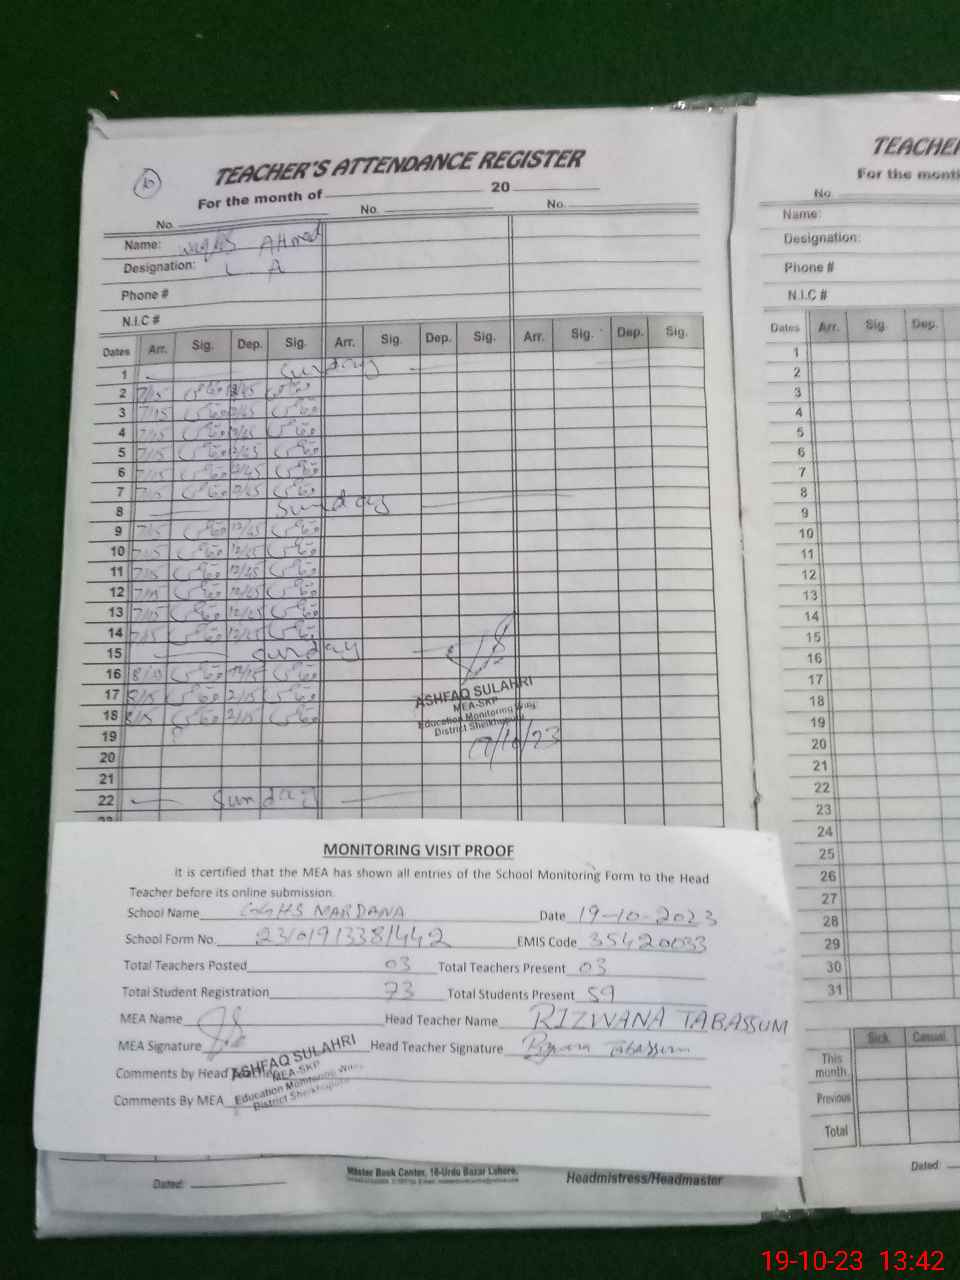 TEACHER'S ATTENDANCE REGISTER
10
For the month of 20
No. No. No.
Name: Ahmed
Designation: L A
Phone #
N.I.C #
Dates Arr. Sig. Dep. Sig. Arr. Sig. Dep. Sig. Arr. Sig. Dep. Sig.
1 Sunday
2 7/15 12/45
3 7/15 12/45
4 7/15 12/45
5 7/15 12/45
6 7/15 12/45
7 7/15 12/45
8 Sunday
9 7/15 12/45
10 7/15 12/45
11 7/15 12/45
12 7/15 12/45
13 7/15 12/45
14 7/15 12/45
15 Sunday
16 8/15
17 8/15 2/15
18 8/15 2/15
19
20
21
22 Sunday
23
ASHFAQ SULAHRI
MEA-SKP
Education Monitoring Wing
District Sheikhupura
17/10/23
MONITORING VISIT PROOF
It is certified that the MEA has shown all entries of the School Monitoring Form to the Head
Teacher before its online submission.
School Name GGHS MARDANA Date 19-10-2023
School Form No. EMIS Code 35420033
Total Teachers Posted 03 Total Teachers Present 03
Total Student Registration 73 Total Students Present 59
MEA Name Head Teacher Name RIZWANA TABASSUM
MEA Signature Head Teacher Signature Rizwana Tabassum
Comments by Head
Comments By MEA
ASHFAQ SULAHRI
MEA-SKP
Education Monitoring Wing
District Sheikhupura
Dated:
Master Book Center, 16-Urdu Bazar Lahore.
Headmistress/Headmaster
TEACHE
For the mont
No
Name:
Designation:
Phone #
N.I.C #
Dates Arr. Sig. Dep.
1
2
3
4
5
6
7
8
9
10
11
12
13
14
15
16
17
18
19
20
21
22
23
24
25
26
27
28
29
30
31
Sick Casual
This month
Previous
Total
Dated:
19-10-23 13:42